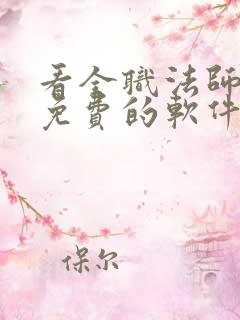 看全職法師
免費的軟件
保尔